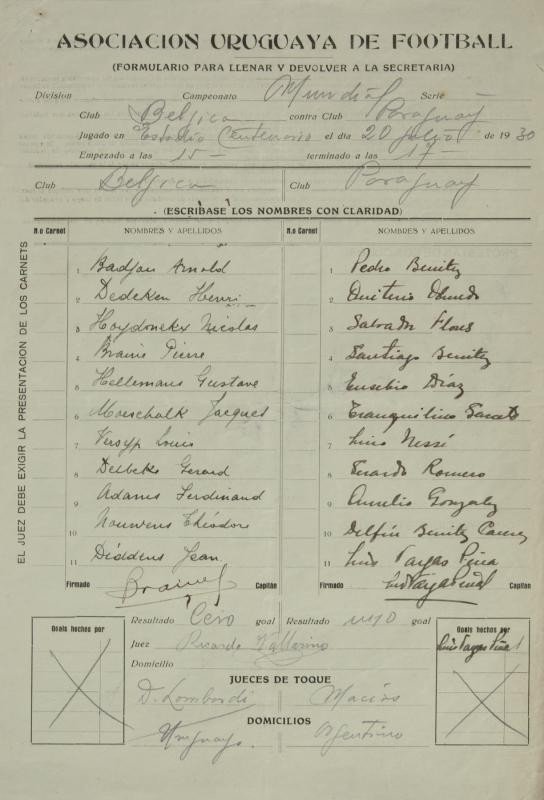 ASOCIACION URUGUAYA DE FOOTBALL
(FORMULARIO PARA LLENAR Y DEVOLVER A LA SECRETARIA)
Division Campeonato Mundial Serie
Club Belgica contra Club Paraguay
Jugado en Estadio Centenario el dia 20 Julio de 1930
Empezado a las 15 — terminado a las 17 —
Club Belgica Club Paraguay
(ESCRÍBASE LOS NOMBRES CON CLARIDAD)
EL JUEZ DEBE EXIGIR LA PRESENTACION DE LOS CARNETS
N.o Carnet NOMBRES Y APELLIDOS N.o Carnet NOMBRES Y APELLIDOS
1 Badjou Arnold 1 Pedro Benitez
2 Dedeken Henri 2 Quiterio Olmedo
3 Hoydonckx Nicolas 3 Salvador Flores
4 Braine Pierre 4 Santiago Benitez
5 Hellemans Gustave 5 Eusebio Díaz
6 Moeschalk Jacques 6 Tranquilino
7 Versyp Louis 7 Lino Nessi
8 Delbeke Gerard 8 Romero
9 Adams Ferdinand 9 Aurelio Gonzalez
10 Nouwens Théodore 10 Delfín Benitez
11 Diddens Jean 11 Luis Vargas Peña
Firmado Braine Capitán Firmado Luis Vargas Peña Capitán
Resultado Cero goal Resultado uno goal
Goals hechos por Goals hechos por
Luis Vargas Peña 1
Juez Ricardo Vallarino
Domicilio
JUECES DE TOQUE
D. Lombardi Macías
DOMICILIOS
Uruguayo. Argentino